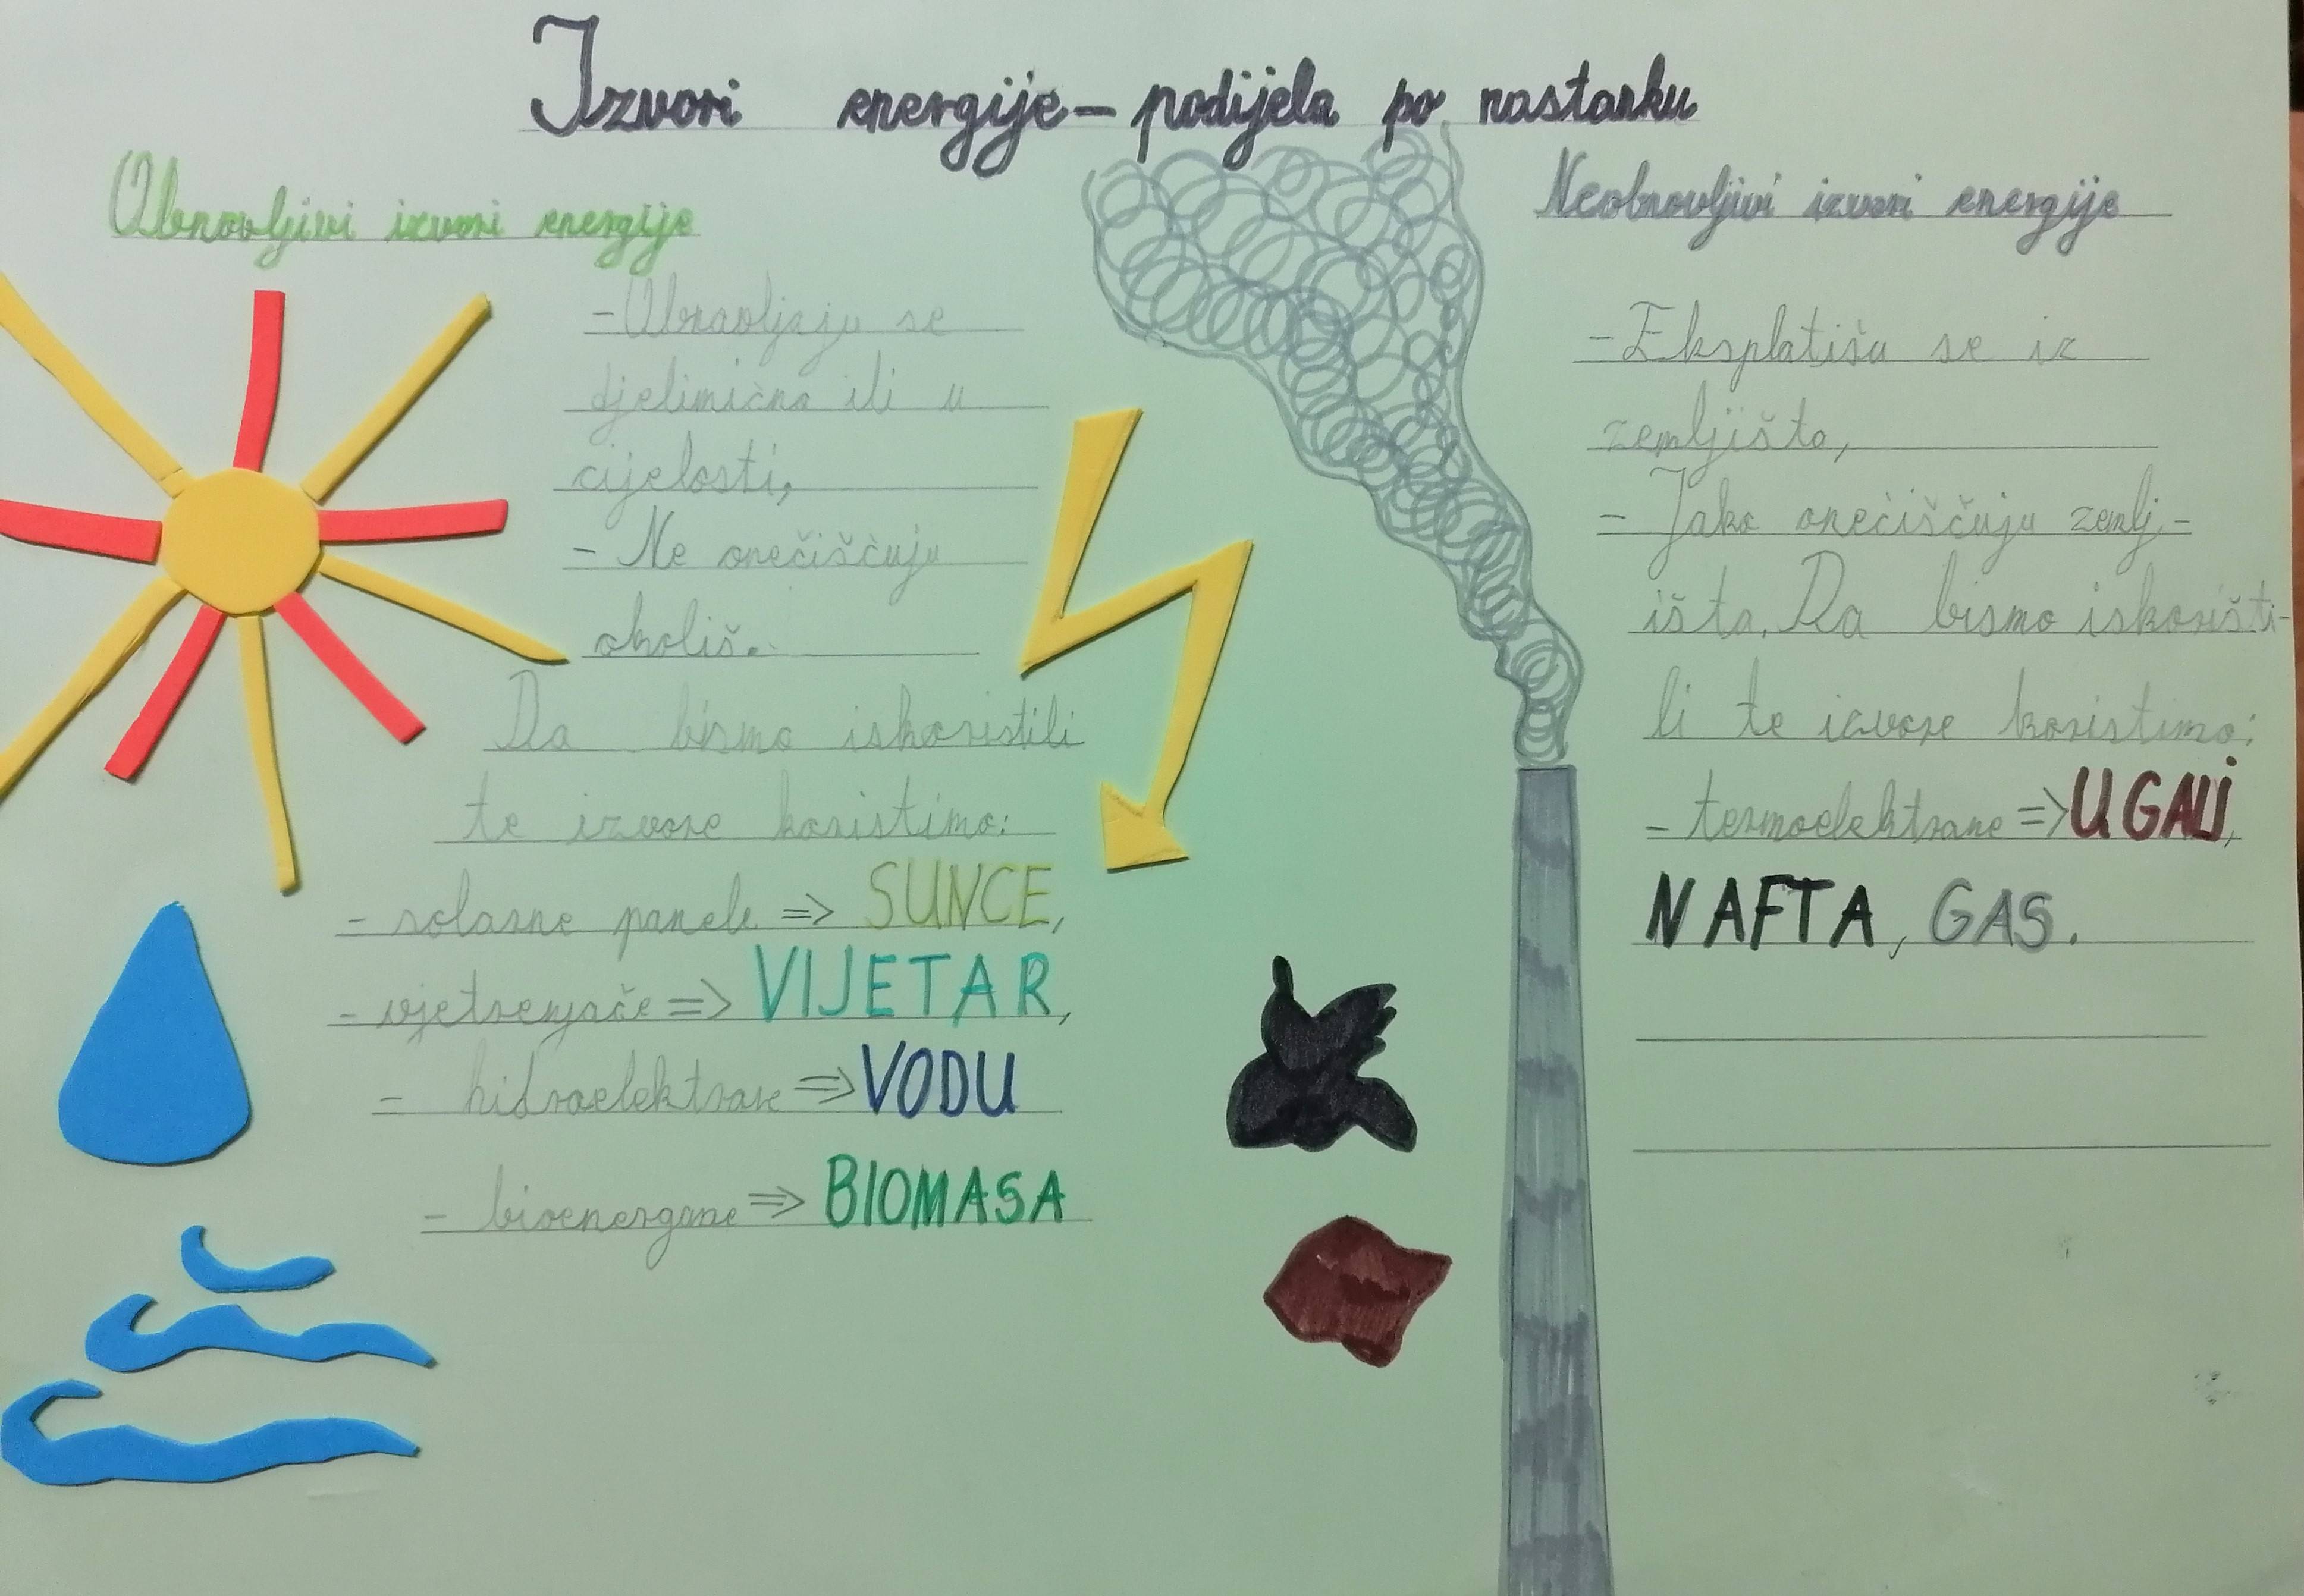 Izvori energije - podijela po nastanku
Obnovljivi izvori energije
- Obnavljaju se
djelimično ili u
cijelosti,
- Ne onečišćuju
okoliš.
Da bismo iskoristili
te izvore koristimo:
- solarne panele => SUNCE,
- vjetrenjače => VIJETAR,
- hidroelektrane => VODU
- bioenergane => BIOMASA
Neobnovljivi izvori energije
- Eksplatišu se iz
zemljišta,
- Jako onečišćuju zemlj-
išta. Da bismo iskorišti-
li te izvore koristimo:
- termoelektrane => UGALJ,
NAFTA, GAS.